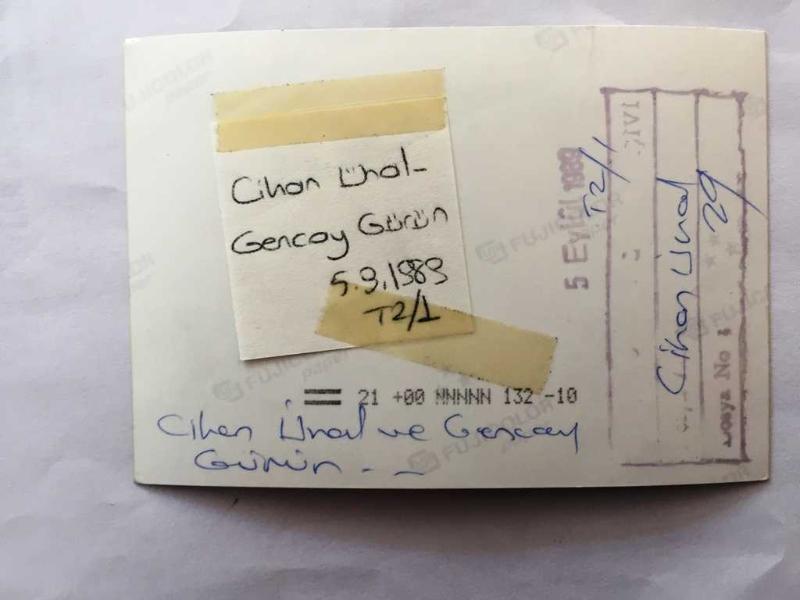 Cihan Ünal-
Gencay Gürün
5.9.1989
T2/1
21 +00 NNNNN 132 -10
Cihan Ünal ve Gencay
Gürün - -
5 Eylül 1989
T2/1
Cihan Ünal
29
Dosya No :
FUJICOLOR
paper